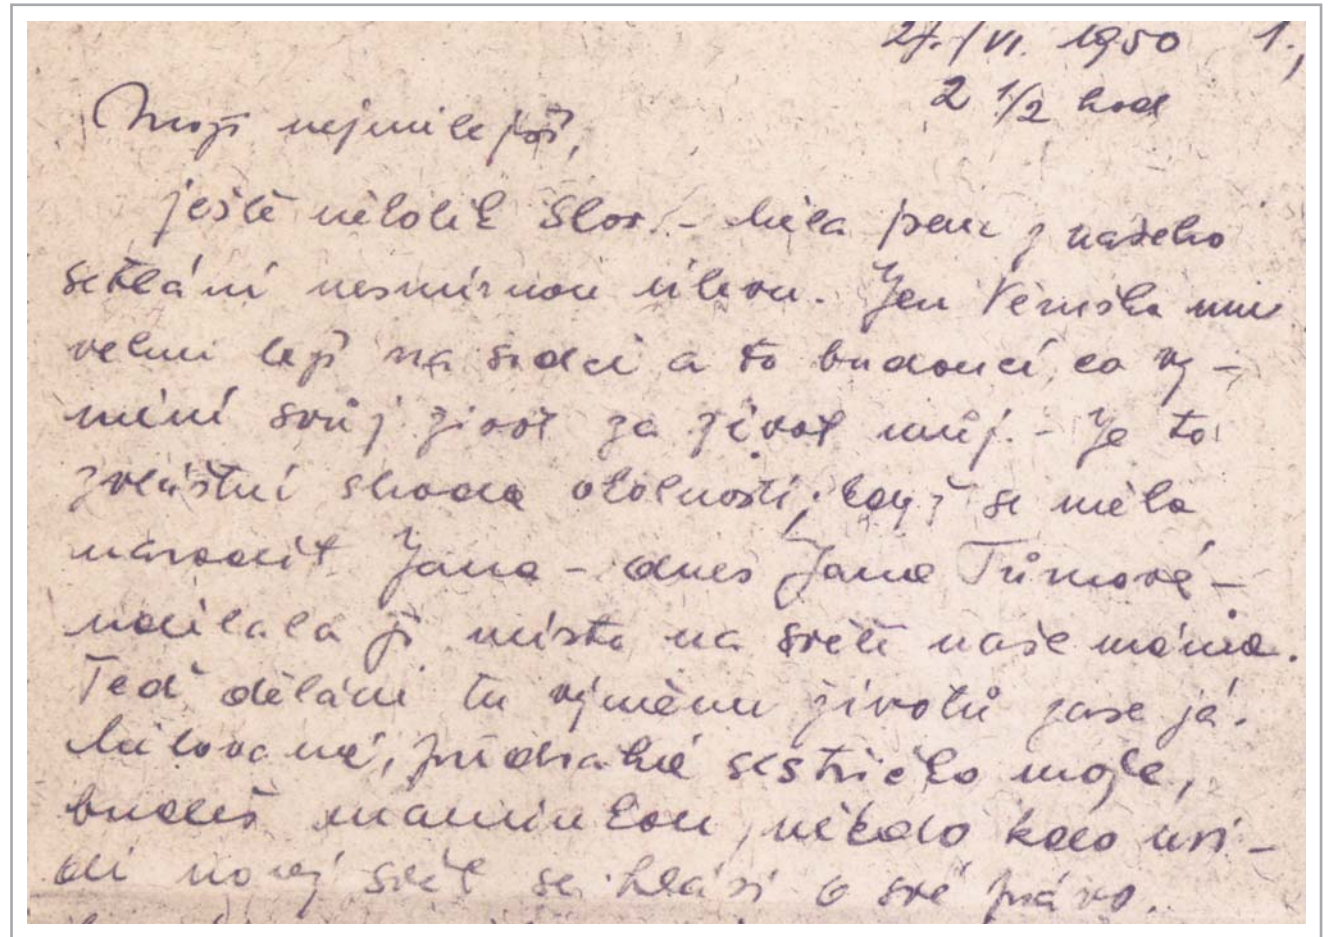 27./VI. 1950 1.,
2 1/2 hod
Moji nejmilejší,
ještě několik slov. - Měla jsem z našeho
setkání nesmírnou úlevu. Jen Věruška mi
velmi leží na srdci a to budoucí, co vy-
mění svůj život za život můj. - Je to
zvláštní shoda okolností; když se měla
narodit Jana - dnes Jana Tůmová -
udělala jí místo na světě naše máma.
Teď dělám tu výměnu životů zase já.
Milovaná, předrahá sestřičko moje,
budeš maminkou, někdo kdo uvi-
dí nový svět se hlásí o své právo.